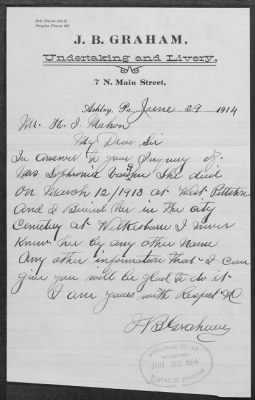 Bell Phone
Peoples Phone
J. B. GRAHAM,
Undertaking and Livery.
7 N. Main Street,
Ashley, Pa, June 29 1914
Mr. H. I. Mahon
My Dear Sir
In answer to your Inquiry of
Mrs Sophronia She died
on March 12/1913 at West Pittston
And I Buried her in the city
Cemetery at Wilkesbarre I never
Knew her by any other Name
Any other information that I can
give you will be glad to do it
I am yours with Respect
J B Graham
RECEIVED
JUN 30 1914
BUREAU OF PENSIONS